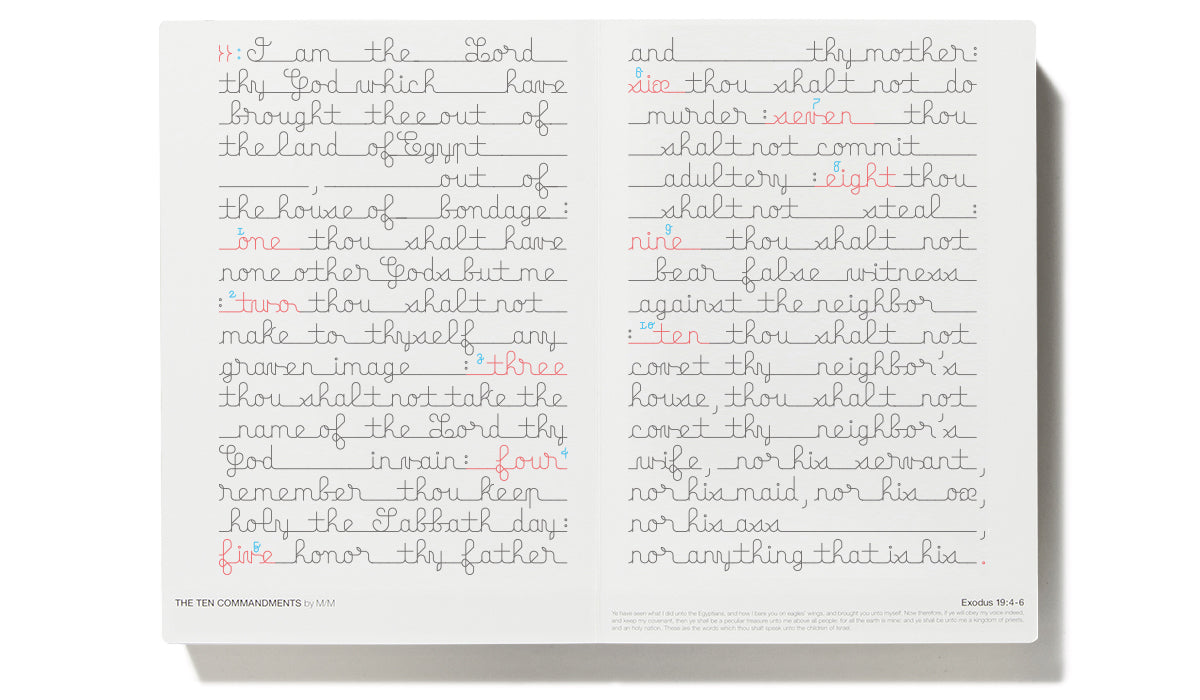 }} : I am the Lord
thy God which have
brought thee out of
the land of Egypt
, out of
the house of bondage :
1 one thou shalt have
none other Gods but me
: 2 two thou shalt not
make to thyself any
graven image : 3 three
thou shalt not take the
name of the Lord thy
God in vain : four 4
remember thou keep
holy the Sabbath day :
five 5 honor thy father
THE TEN COMMANDMENTS by M/M
and thy mother :
6 six thou shalt not do
murder : seven 7 thou
shalt not commit
adultery : 8 eight thou
shalt not steal :
nine 9 thou shalt not
bear false witness
against the neighbor
: 10 ten thou shalt not
covet thy neighbor's
house, thou shalt not
covet thy neighbor's
wife, nor his servant,
nor his maid, nor his ox,
nor his ass,
nor anything that is his.
Exodus 19:4-6
Ye have seen what I did unto the Egyptians, and how I bare you on eagles' wings, and brought you unto myself. Now therefore, if ye will obey my voice indeed,
and keep my covenant, then ye shall be a peculiar treasure unto me above all people: for all the earth is mine: and ye shall be unto me a kingdom of priests,
and an holy nation. These are the words which thou shalt speak unto the children of Israel.